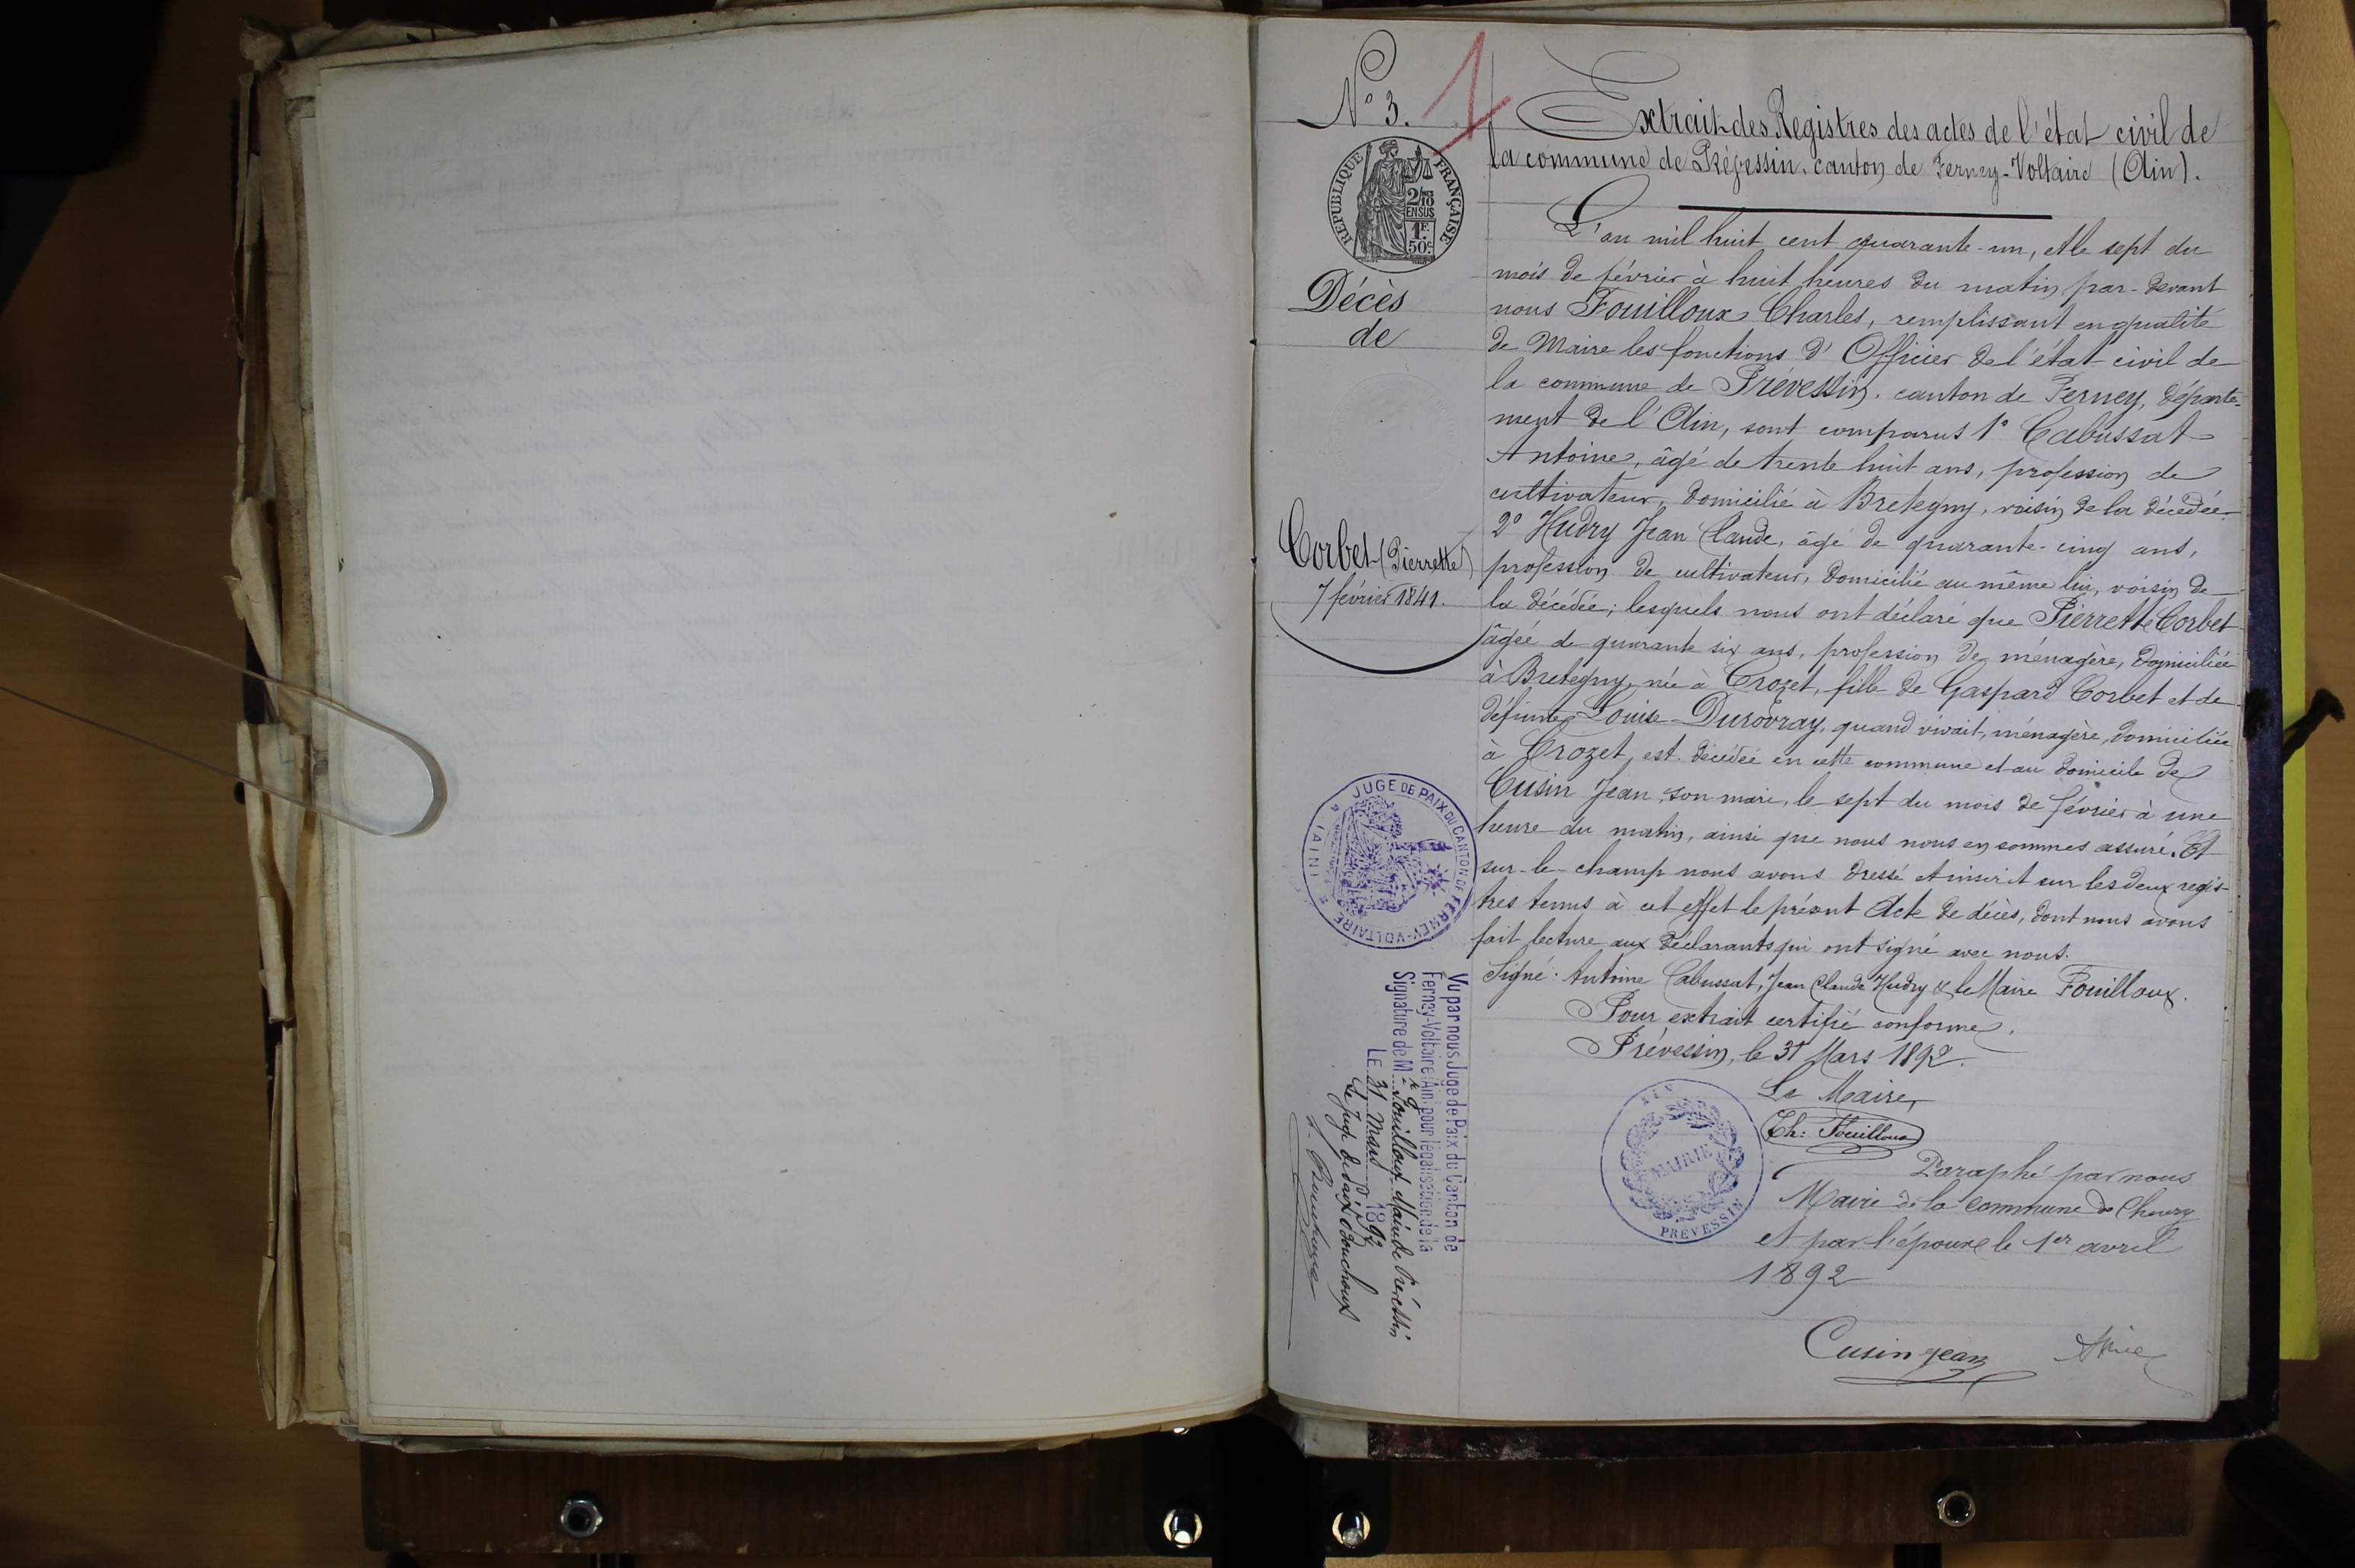 N° 3.
1
RÉPUBLIQUE FRANÇAISE
2/10
EN SUS
1F
50c
Décès
de
Corbet (Pierrette)
7 février 1841.
Extrait des Registres des actes de l'état civil de
la commune de Prévessin, canton de Ferney-Voltaire (Ain).
L'an mil huit cent quarante-un, et le sept du
mois de février à huit heures du matin par-devant
nous Fouilloux Charles, remplissant en qualité
de Maire les fonctions d'Officier de l'état civil de
la commune de Prévessin, canton de Ferney, départe-
ment de l'Ain, sont comparus 1° Cabussat
Antoine, âgé de trente huit ans, profession de
cultivateur, domicilié à Bretegny, voisin de la décédée
2° Hudry Jean Claude, âgé de quarante-cinq ans,
profession de cultivateur, domicilié au même lieu, voisin de
la décédée; lesquels nous ont déclaré que Pierrette Corbet
âgée de quarante six ans, profession de ménagère, domiciliée
à Bretegny, née à Crozet, fille de Gaspard Corbet et de
défunte Louise Durovray, quand vivait, ménagère, domiciliée
à Crozet, est décédée en cette commune et au domicile de
Cusin Jean, son mari, le sept du mois de février à une
heure du matin, ainsi que nous nous en sommes assuré. Et
sur-le-champ nous avons dressé et inscrit sur les deux regis-
tres tenus à cet effet le présent Acte de décès, dont nous avons
fait lecture aux déclarants qui ont signé avec nous.
Signé: Antoine Cabussat, Jean Claude Hudry & le Maire Fouilloux.
Pour extrait certifié conforme,
Prévessin, le 31 Mars 1892.
Le Maire,
Ch: Fouilloux
MAIRIE
PRÉVESSIN
AIN
Paraphé par nous
Maire de la commune de Chevry
et par l'époux le 1er avril
1892
Cusin jean
JUGE DE PAIX DU CANTON DE FERNEY-VOLTAIRE
(AIN)
Vu par nous Juge de Paix du Canton de
Ferney-Voltaire (Ain) pour légalisation de la
Signature de M Fouilloux Maire de Prévessin
LE 31 Mars 1892
Le Juge de paix